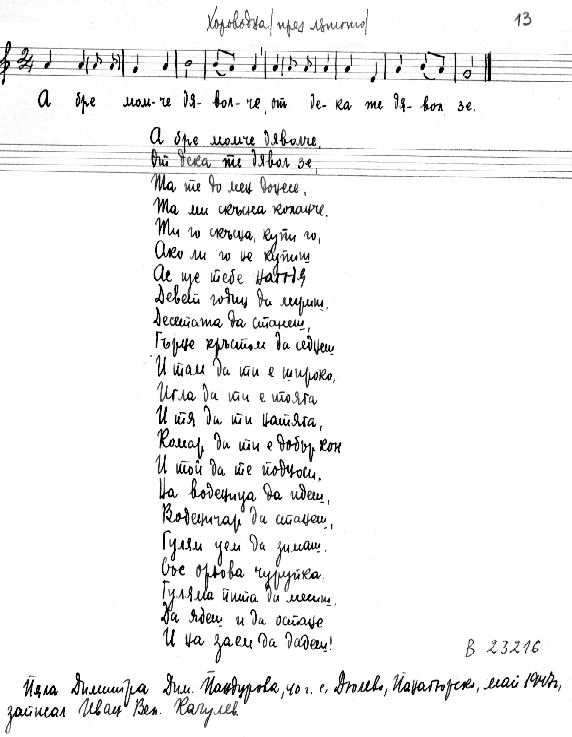 Хороводна /през лятото/
13
А бре мом-че дя-вол-че, от де-ка те дя-вол зе.
А бре момче дяволче,
От дека те дявол зе,
Та те до мен донесе,
Та ми скъсна коланче.
Ти го скъсна, купи го,
Ако ли го не купиш
Ас ще тебе натодя
Девет годин да лежиш,
Десетата да станеш,
Гърне кръстом да седнеш
И там да ти е широко,
Игла да ти е тояга
И тя да ти натяга,
Комар да ти е добър кон
И той да те подноси,
На воденица да идеш,
Воденичар да станеш,
Гулям уем да зимаш.
Със орехова чурупка.
Гуляма пита да месиш,
Да ядеш и да остане
И на заем да дадеш!
В 23216
Пяла Димитра Дим. Пандурова, 40 г. с. Дюлево, Панагюрско, май 1947 г.,
записал Иван Вен. Качулев.